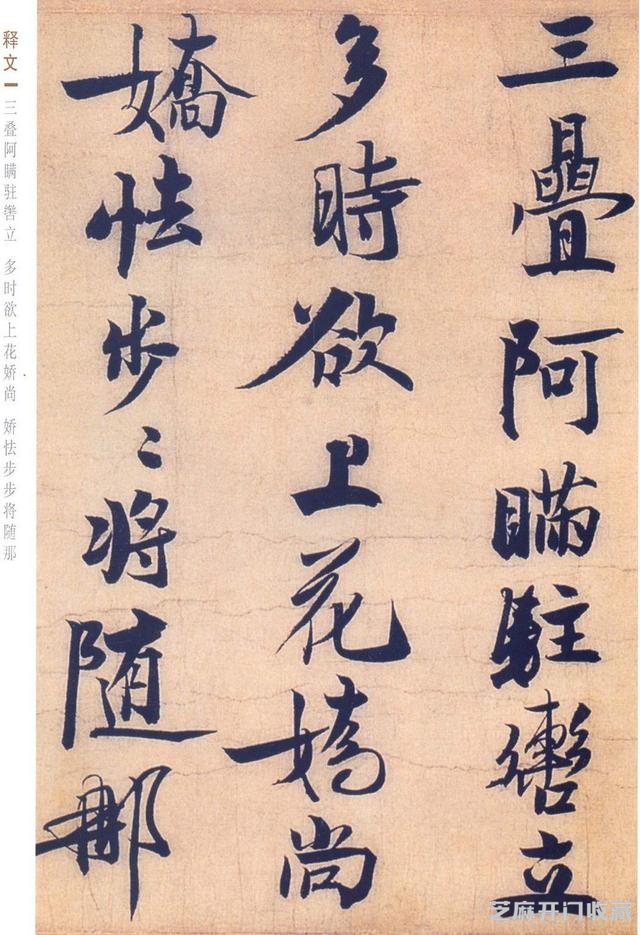 三疊阿瞞駐轡立
多時欲上花嬌尚
嬌怯步〻将随那
释文
三叠阿瞒驻辔立 多时欲上花娇尚 娇怯步步将随那
芝麻开门收藏